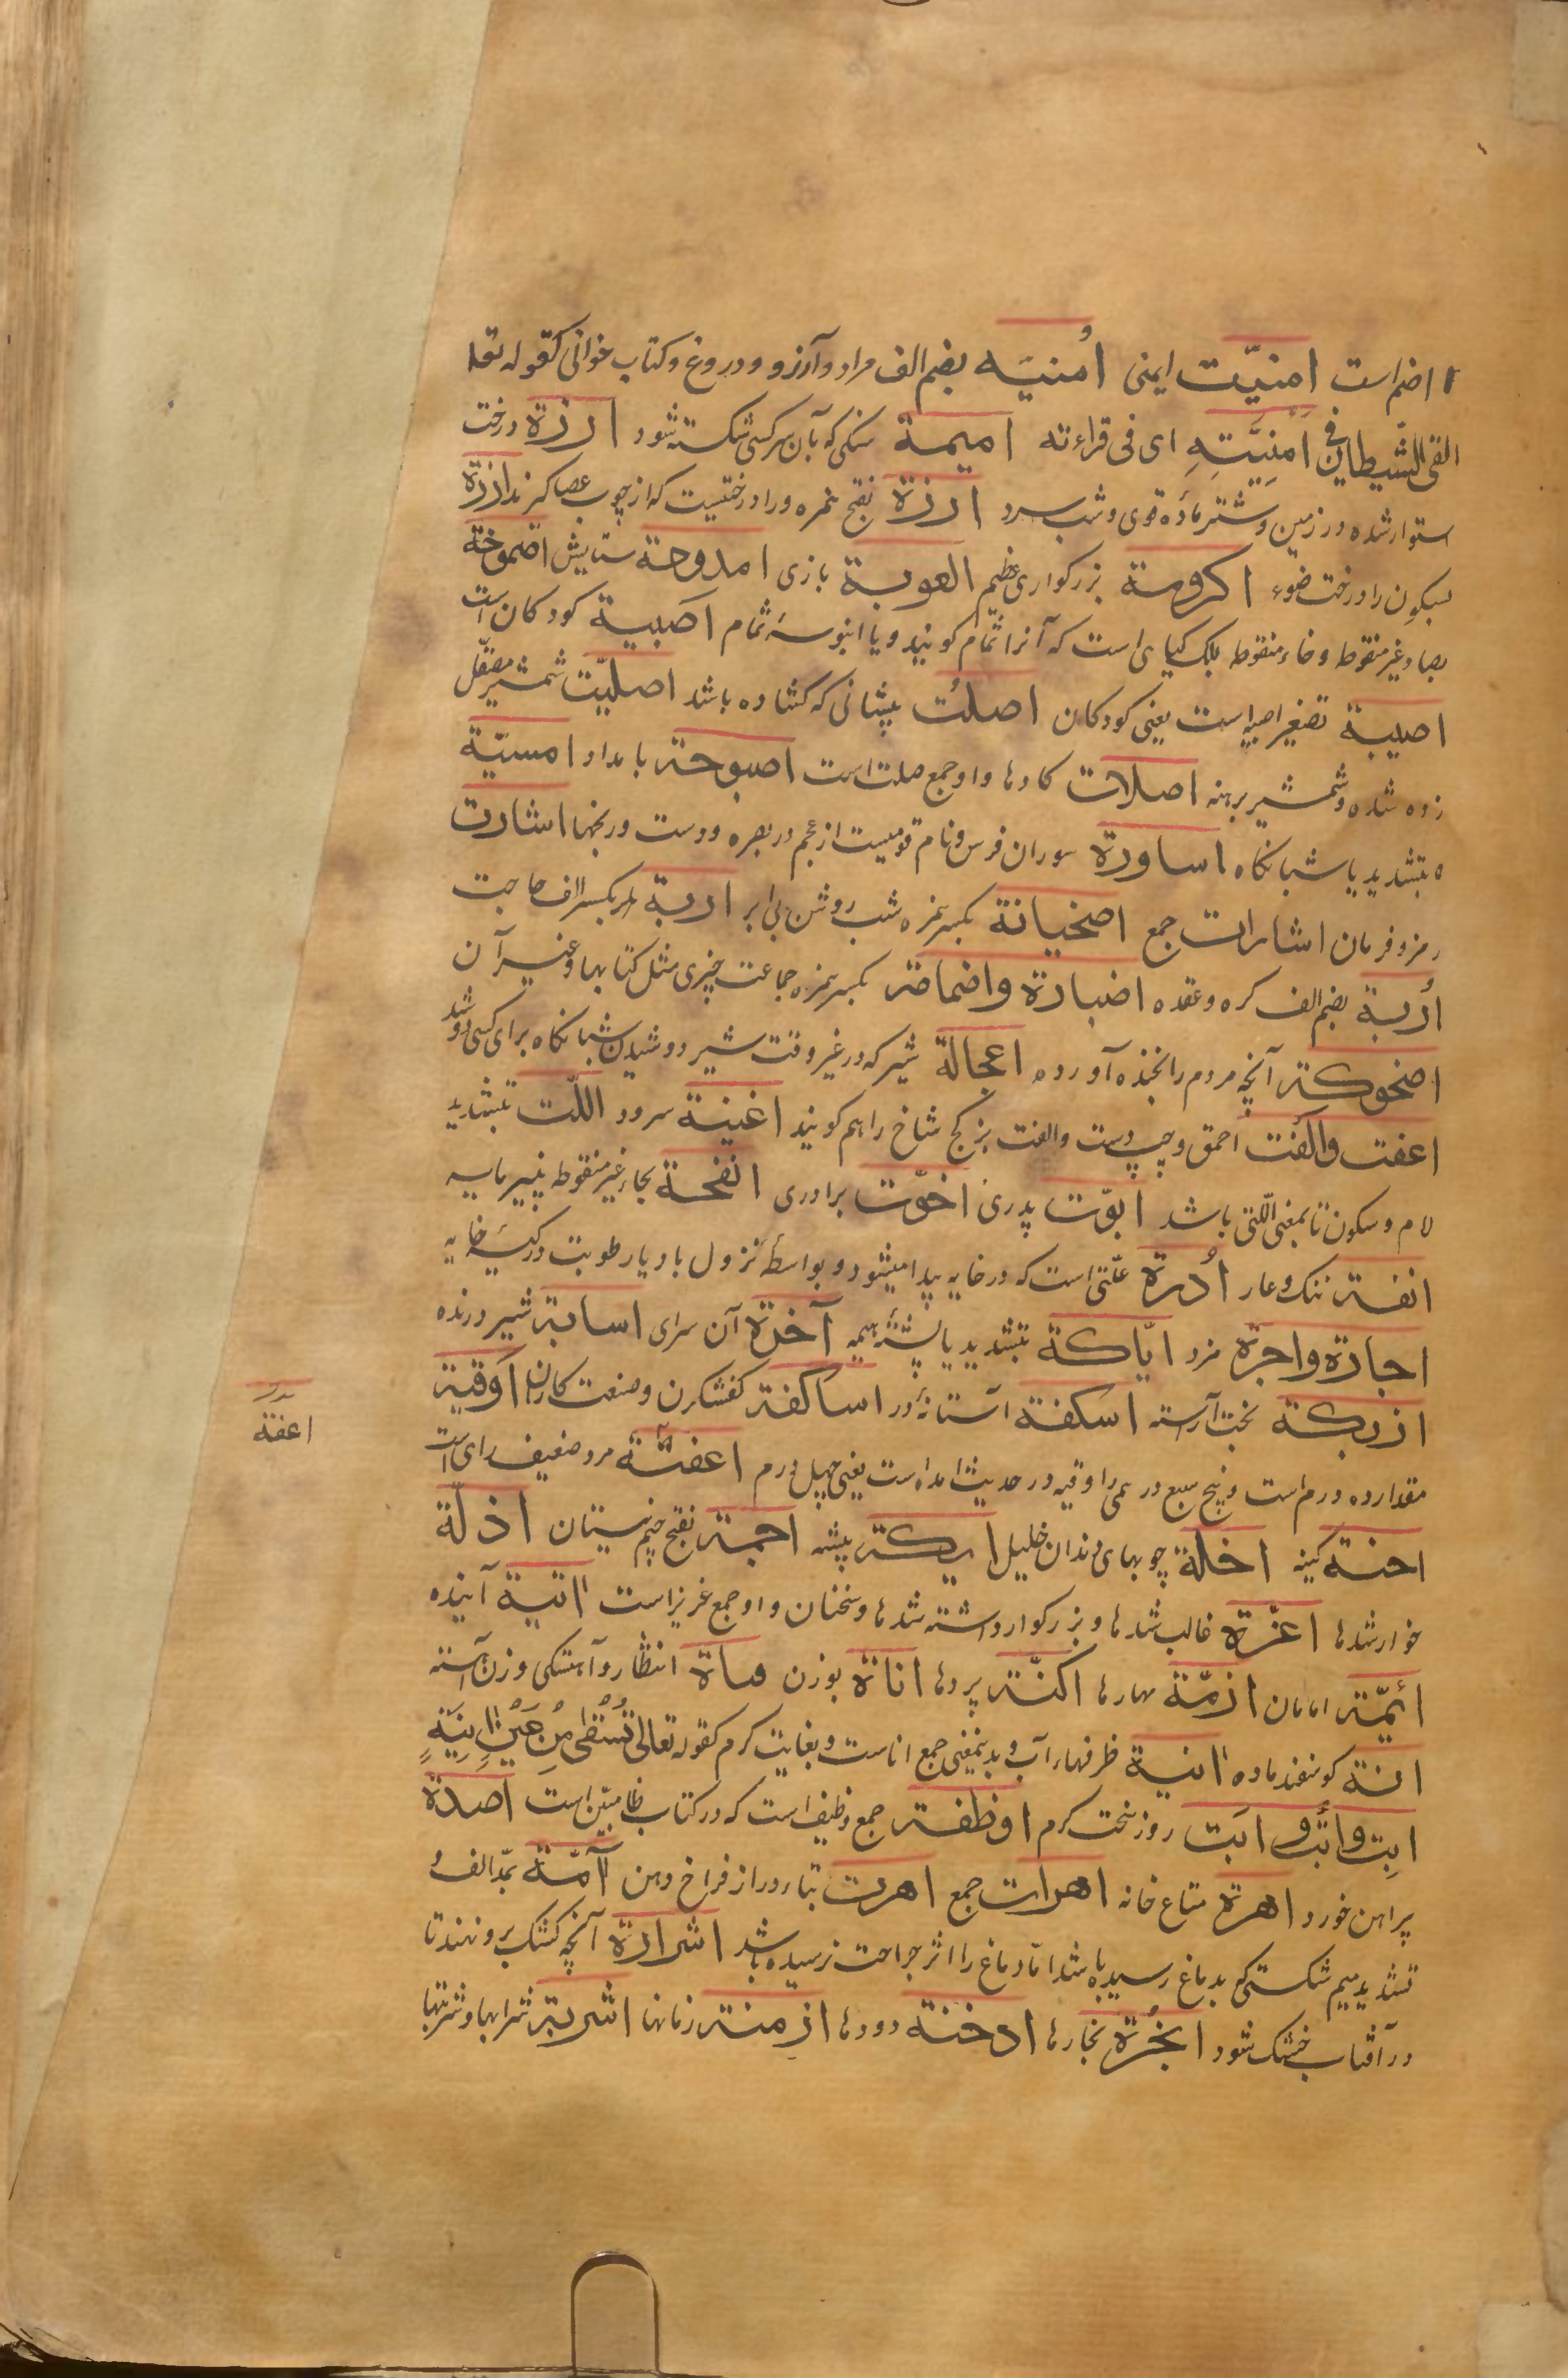 اضم است امنیّت ایمنی اُمنیَه بضم الف مراد و آرزو و دروغ و کتاب خوانی کقوله تعا
القی الشّیطان فی اُمْنِیَّتِهِ ای فی قراءته امیمة سنکی که بآن سر کسی شکسته شود ارزة درخت
استوار شده در زمین و شتر ماده قوی و شب سرد ارزة بفتح همزه و را درختیست که از چوب عصا کنند ارزة
بسکون را درخت اکرومة بزرکواری عظیم العوبة بازی امدوحة ستایش اصموخة
بصاد غیر منقوطه و خاء منقوطه کیاهی است که آنرا ثمام کویند و یا انبوسهٔ ثمام اصبیة کودکان است
اصیبیة تصغیر اصبیه است یعنی کودکان اصلُت پیشانی که کشاده باشد اصلیّت شمشیر صیقل
زده شده و شمشیر برهنه اصلات کاردها و او جمع صلت است اصبوحة بامداد امسیّة
بتشدید یا شبانکاه اساورة سوران فرس و نام قومیست از عجم در بصره و دست ورنجها اشارت
رمز و فرمان اشارات جمع اضحیانة بکسر همزه شب روشن بی ابر اربة بکسر الف حاجت
اُربة بضم الف کره و عقده اضبارة واضمامة بکسر همزه جماعت چیزی مثل کتابها و غیر آن
اضحوکة آنچه مردم را بخنده آورده اعجالة شیر که در غیر وقت شیر دوشیدن شبانکاه برای کسی دوشد
اعفت والفت احمق و چپ دست والفت بز کج شاخ را هم کویند اغنیة سرود اللّت بتشدید
لام و سکون تا بمعنی اللّتی باشد ابوّت پدری اخوّت برادری انفحة بحاء غیر منقوطه پنیر مایه
انفة ننک و عار اُدرة علّتی است که در خایه پیدا میشود و بواسطهٔ نزول باد یا رطوبت در کیسهٔ خایه
اجارة واجرة مزد ایّاکة بتشدید یا پشتهٔ هیمه آخرة آن سرای اسابة شیر درنده
ازیکة تخت آراسته اسکفة آستانهٔ در اساکفة کفشکران و صنعت کاران اوقیة
مقدار ده درم است و پنج سبع درمی و اوقیه در حدیث امده است یعنی چهل درم اعفتة مرد ضعیف رای است
احنة کینه اخلّة چوبهای دندان خلیل ایکة بیشه اجمة بفتح جیم نیستان اذلّة
خوار شدها اعزّة غالب شدها و بزرکوار داشته شدها و سخنان و او جمع عزیز است آتیة آینده
ائمّة امامان ازمّة مهارها اکنّة پردها اناة بوزن مساة انتظار و آهستکی و زن آهسته
انة کوسفند ماده آنیة ظرفهاء آب و بدینمعنی جمع اناست و بغایت کرم کقوله تعالی تُسْقٰی مِنْ عَیْنٍ آنِیَةٍ
ابِت وابْت وابَت روز سخت کرم اوظفة جمع وظیف است که در کتاب ظا مبیّن است اصدة
پیراهن خورد اهرة متاع خانه اهرات جمع اهرت بتاء دراز فراخ دهن آمّة بمدّ الف و
تشدید میم شکستکی که بدماغ رسیده باشد امّا دماغ را اثر جراحت نرسیده باشد اشرارة آنچه کشک برو نهند تا
در آفتاب خشک شود ابخُرة بخارها ادخنة دودها ازمنة زمانها اشربة شرابها و شربتها
اعفة